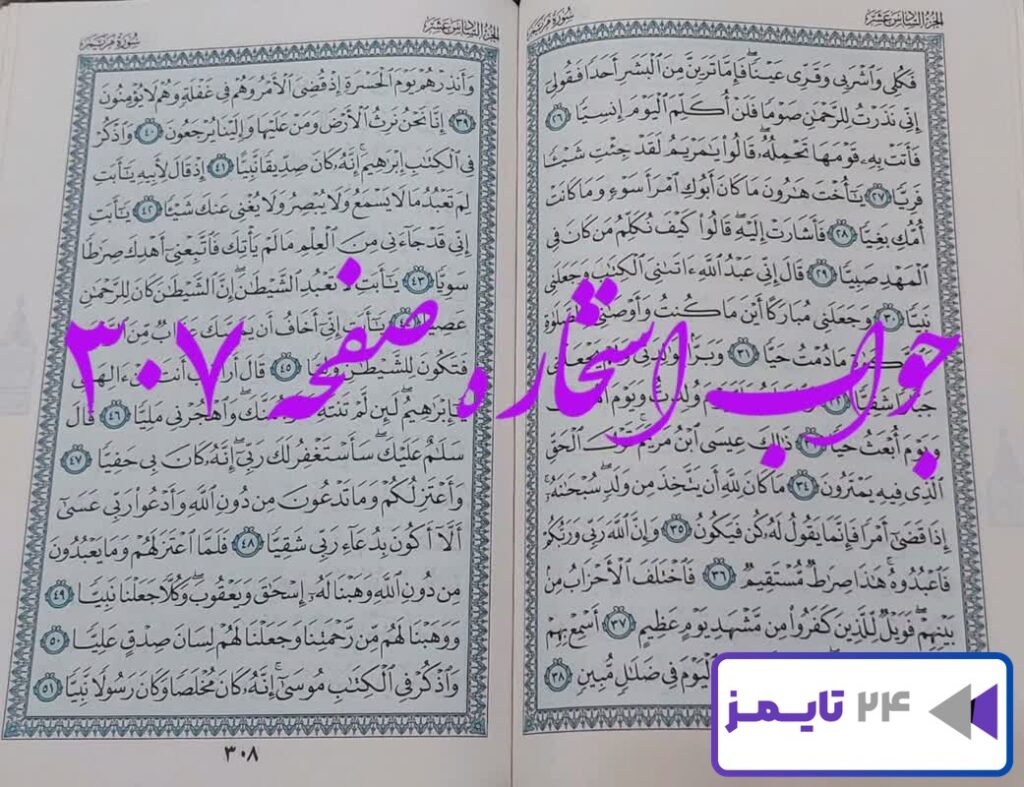 الجزء السادس عشر
سورة مريم
فَكُلِي وَٱشْرَبِي وَقَرِّي عَيْنًا فَإِمَّا تَرَيِنَّ مِنَ ٱلْبَشَرِ أَحَدًا فَقُولِيٓ
إِنِّي نَذَرْتُ لِلرَّحْمَٰنِ صَوْمًا فَلَنْ أُكَلِّمَ ٱلْيَوْمَ إِنسِيًّا ٢٦
فَأَتَتْ بِهِۦ قَوْمَهَا تَحْمِلُهُۥ قَالُوا۟ يَٰمَرْيَمُ لَقَدْ جِئْتِ شَيْـًٔا
فَرِيًّا ٢٧ يَٰٓأُخْتَ هَٰرُونَ مَا كَانَ أَبُوكِ ٱمْرَأَ سَوْءٍ وَمَا كَانَتْ
أُمُّكِ بَغِيًّا ٢٨ فَأَشَارَتْ إِلَيْهِ قَالُوا۟ كَيْفَ نُكَلِّمُ مَن كَانَ فِي
ٱلْمَهْدِ صَبِيًّا ٢٩ قَالَ إِنِّي عَبْدُ ٱللَّهِ ءَاتَىٰنِيَ ٱلْكِتَٰبَ وَجَعَلَنِي
نَبِيًّا ٣٠ وَجَعَلَنِي مُبَارَكًا أَيْنَ مَا كُنتُ وَأَوْصَٰنِي
مَا دُمْتُ حَيًّا ٣١
وُلِدتُّ وَيَوْمَ
وَيَوْمَ أُبْعَثُ حَيًّا ذَٰلِكَ عِيسَى ٱبْنُ مَرْيَمَ قَوْلَ ٱلْحَقِّ
ٱلَّذِي فِيهِ يَمْتَرُونَ ٣٤ مَا كَانَ لِلَّهِ أَن يَتَّخِذَ مِن وَلَدٍ سُبْحَٰنَهُۥٓ
إِذَا قَضَىٰٓ أَمْرًا فَإِنَّمَا يَقُولُ لَهُۥ كُن فَيَكُونُ ٣٥ وَإِنَّ ٱللَّهَ رَبِّي وَرَبُّكُمْ
فَٱعْبُدُوهُ هَٰذَا صِرَٰطٌ مُّسْتَقِيمٌ ٣٦ فَٱخْتَلَفَ ٱلْأَحْزَابُ مِنۢ
بَيْنِهِمْ فَوَيْلٌ لِّلَّذِينَ كَفَرُوا۟ مِن مَّشْهَدِ يَوْمٍ عَظِيمٍ ٣٧ أَسْمِعْ بِهِمْ
ٱلْيَوْمَ فِي ضَلَٰلٍ مُّبِينٍ ٣٨
الجزء السادس عشر
سورة مريم
وَأَنذِرْهُمْ يَوْمَ ٱلْحَسْرَةِ إِذْ قُضِيَ ٱلْأَمْرُ وَهُمْ فِي غَفْلَةٍ وَهُمْ لَا يُؤْمِنُونَ
٣٩ إِنَّا نَحْنُ نَرِثُ ٱلْأَرْضَ وَمَنْ عَلَيْهَا وَإِلَيْنَا يُرْجَعُونَ ٤٠ وَٱذْكُرْ
فِي ٱلْكِتَٰبِ إِبْرَٰهِيمَ إِنَّهُۥ كَانَ صِدِّيقًا نَّبِيًّا ٤١ إِذْ قَالَ لِأَبِيهِ يَٰٓأَبَتِ
لِمَ تَعْبُدُ مَا لَا يَسْمَعُ وَلَا يُبْصِرُ وَلَا يُغْنِي عَنكَ شَيْـًٔا ٤٢ يَٰٓأَبَتِ
إِنِّي قَدْ جَآءَنِي مِنَ ٱلْعِلْمِ مَا لَمْ يَأْتِكَ فَٱتَّبِعْنِيٓ أَهْدِكَ صِرَٰطًا
سَوِيًّا ٤٣ يَٰٓأَبَتِ لَا تَعْبُدِ ٱلشَّيْطَٰنَ إِنَّ ٱلشَّيْطَٰنَ كَانَ لِلرَّحْمَٰنِ
يَٰٓأَبَتِ إِنِّيٓ أَخَافُ أَن
فَتَكُونَ لِلشَّيْطَٰنِ ٤٥ قَالَ أَرَاغِبٌ أَنتَ
يَٰٓإِبْرَٰهِيمُ لَئِن لَّمْ تَنتَهِ وَٱهْجُرْنِي مَلِيًّا ٤٦ قَالَ
سَلَٰمٌ عَلَيْكَ سَأَسْتَغْفِرُ لَكَ رَبِّيٓ إِنَّهُۥ كَانَ بِي حَفِيًّا ٤٧
وَأَعْتَزِلُكُمْ وَمَا تَدْعُونَ مِن دُونِ ٱللَّهِ وَأَدْعُوا۟ رَبِّي عَسَىٰٓ
أَلَّآ أَكُونَ بِدُعَآءِ رَبِّي شَقِيًّا ٤٨ فَلَمَّا ٱعْتَزَلَهُمْ وَمَا يَعْبُدُونَ
مِن دُونِ ٱللَّهِ وَهَبْنَا لَهُۥٓ إِسْحَٰقَ وَيَعْقُوبَ وَكُلًّا جَعَلْنَا نَبِيًّا ٤٩
وَوَهَبْنَا لَهُم مِّن رَّحْمَتِنَا وَجَعَلْنَا لَهُمْ لِسَانَ صِدْقٍ عَلِيًّا ٥٠
وَٱذْكُرْ فِي ٱلْكِتَٰبِ مُوسَىٰٓ إِنَّهُۥ كَانَ مُخْلَصًا وَكَانَ رَسُولًا نَّبِيًّا ٥١
٣٠٨
جواب استخاره صفحه ۳۰۷
۲۴ تایمز